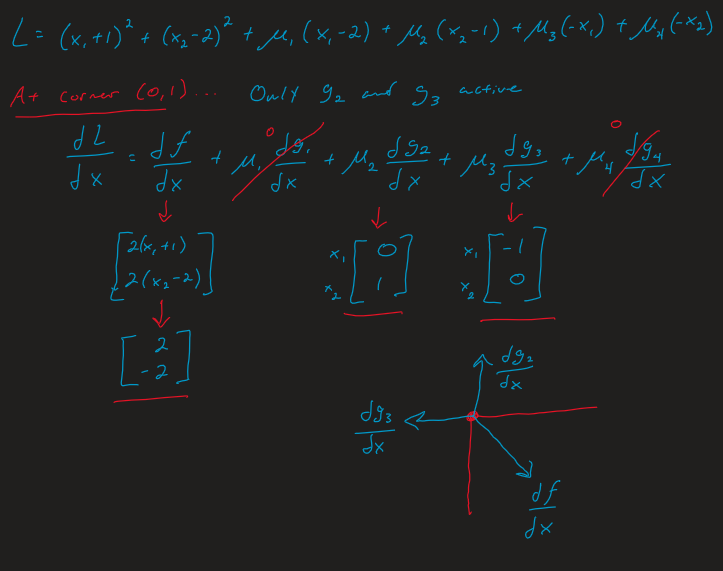 L = (x₁+1)² + (x₂-2)² + μ₁(x₁-2) + μ₂(x₂-1) + μ₃(-x₁) + μ₄(-x₂)
At corner (0,1)... Only g₂ and g₃ active
dL/dx = df/dx + μ₁ dg₁/dx 0 + μ₂ dg₂/dx + μ₃ dg₃/dx + μ₄ dg₄/dx 0
[2(x₁+1) x₁ [0 x₁ [-1
2(x₂-2)] x₂ 1] x₂ 0]
[2
-2]
dg₂/dx
dg₃/dx
df/dx